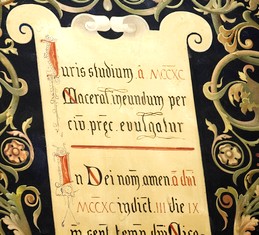 Juris studium á MCCXC
Maceratę ineundum per
civ pręc. evulgatur
In Dei nom̃ amen á dñi
MCCXC indict. III die IX
m̃ sept. temp. dñi Nico-